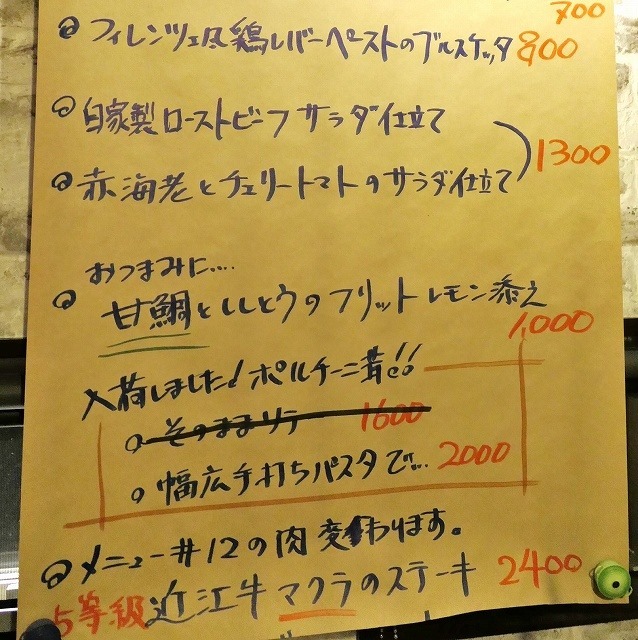 700
フィレンツェ風鶏レバーペーストのブルスケッタ 800
自家製ローストビーフサラダ仕立て
1300
赤海老とチェリートマトのサラダ仕立て
おつまみに‥‥
甘鯛とししとうのフリットレモン添え
1,000
入荷しました!ポルチーニ茸!!
そのままソテー 1600
幅広手打ちパスタで‥ 2000
メニュー#12の肉変わります。
5等級近江牛マクラのステーキ 2400